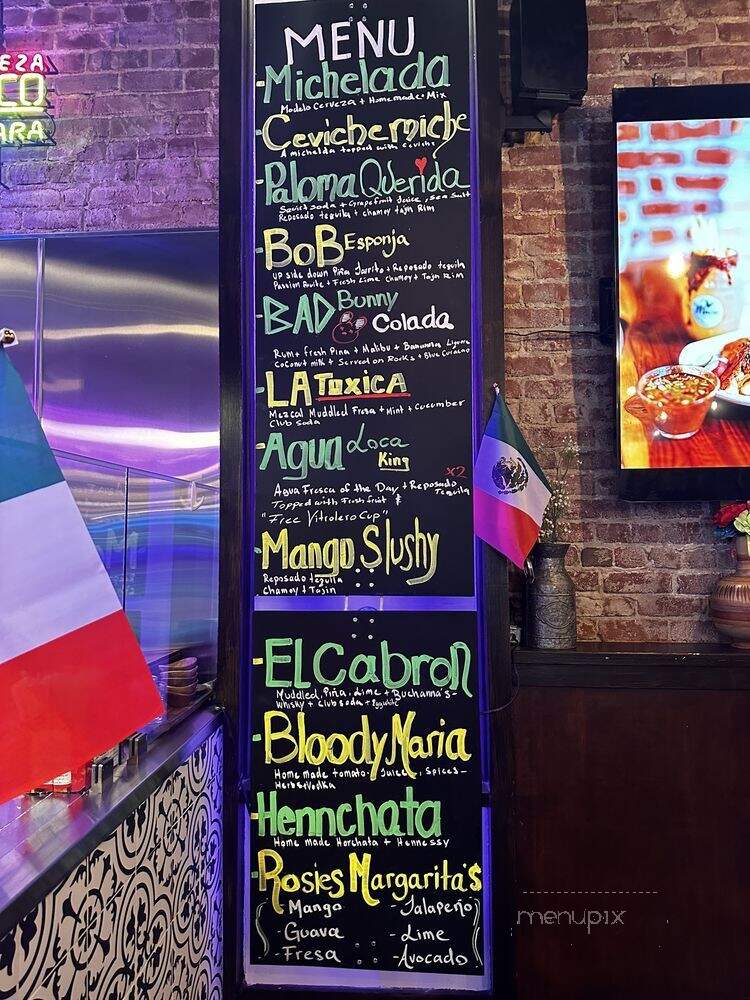 EZA
CO
ARA
MENU
Michelada
Modelo Cerveza + Homemade Mix
Cevichemiche
A michelda topped with Ceviche
Paloma Querida
Squirt soda + Grapefruit Juice, Sea Salt
Reposado tequila + chamoy tajin Rim
BoB Esponja
UP side down Piña Jarrito + Reposado tequila
Passion fruite + Fresh Lime Chamoy + Tajin Rim
BAD Bunny
Colada
Rum + fresh Pina + Malibu + Bananna Liquor
Coconut milk + Served on Rocks + Blue Curacao
LA Toxica
Mezcal Muddled Fresa + Mint + Cucumber
Club Soda
Agua Loca
King
x2
Agua Fresca of the Day + Reposado Tequila
Topped with Fresh fruit
"Free Vitrolero Cup"
Mango Slushy
Reposado tequila
Chamoy + Tajin
El Cabron
Muddled, Piña, Lime + Buchanna's-
Whisky + Club soda + Eggwhite
Bloody Maria
Home made tomato-Juice, Spices-
Herbs+Vodka
Hennchata
Home made Horchata + Hennessy
Rosies Margarita's
- Mango
- Jalapeño
- Guava
- Lime
- Fresa
- Avocado
menupix